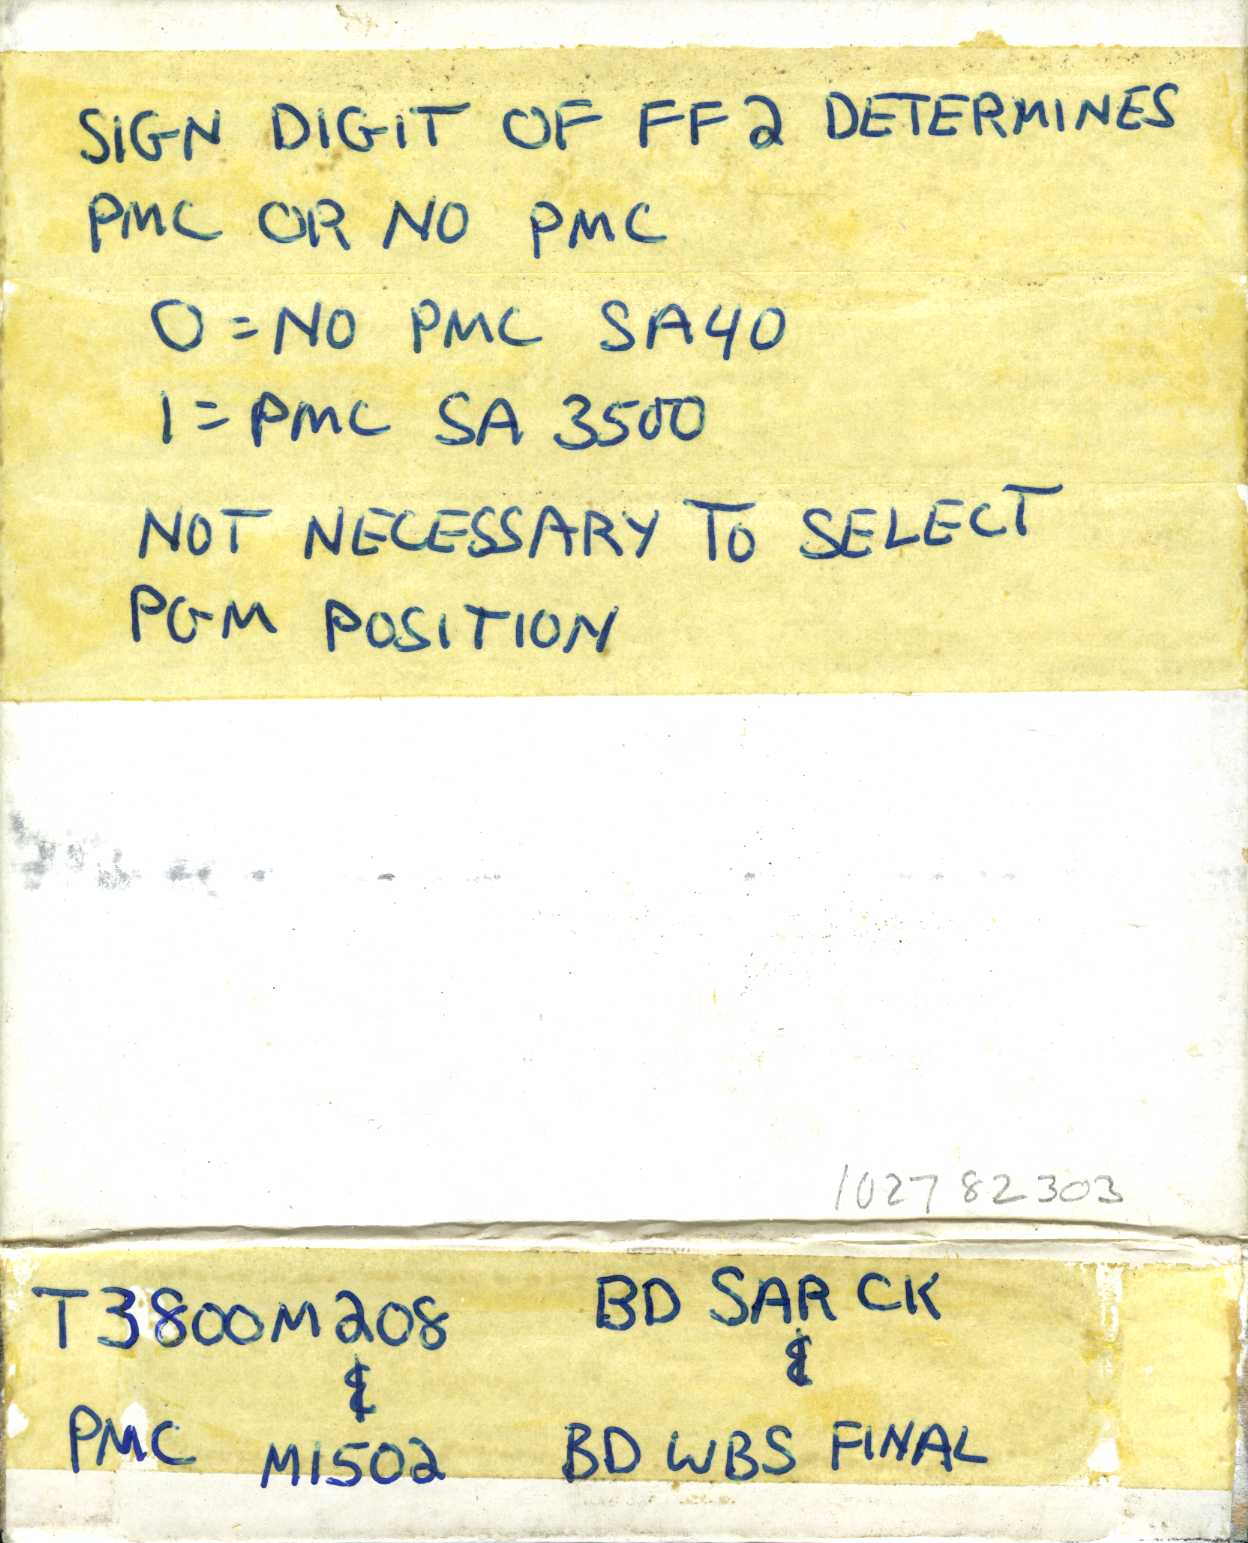 SIGN DIGIT OF FF2 DETERMINES
PMC OR NO PMC
0 = NO PMC SA40
1 = PMC SA 3500
NOT NECESSARY TO SELECT
PGM POSITION
102782303
T3800M208 BD SAR CK
& &
PMC M1502 BD WBS FINAL